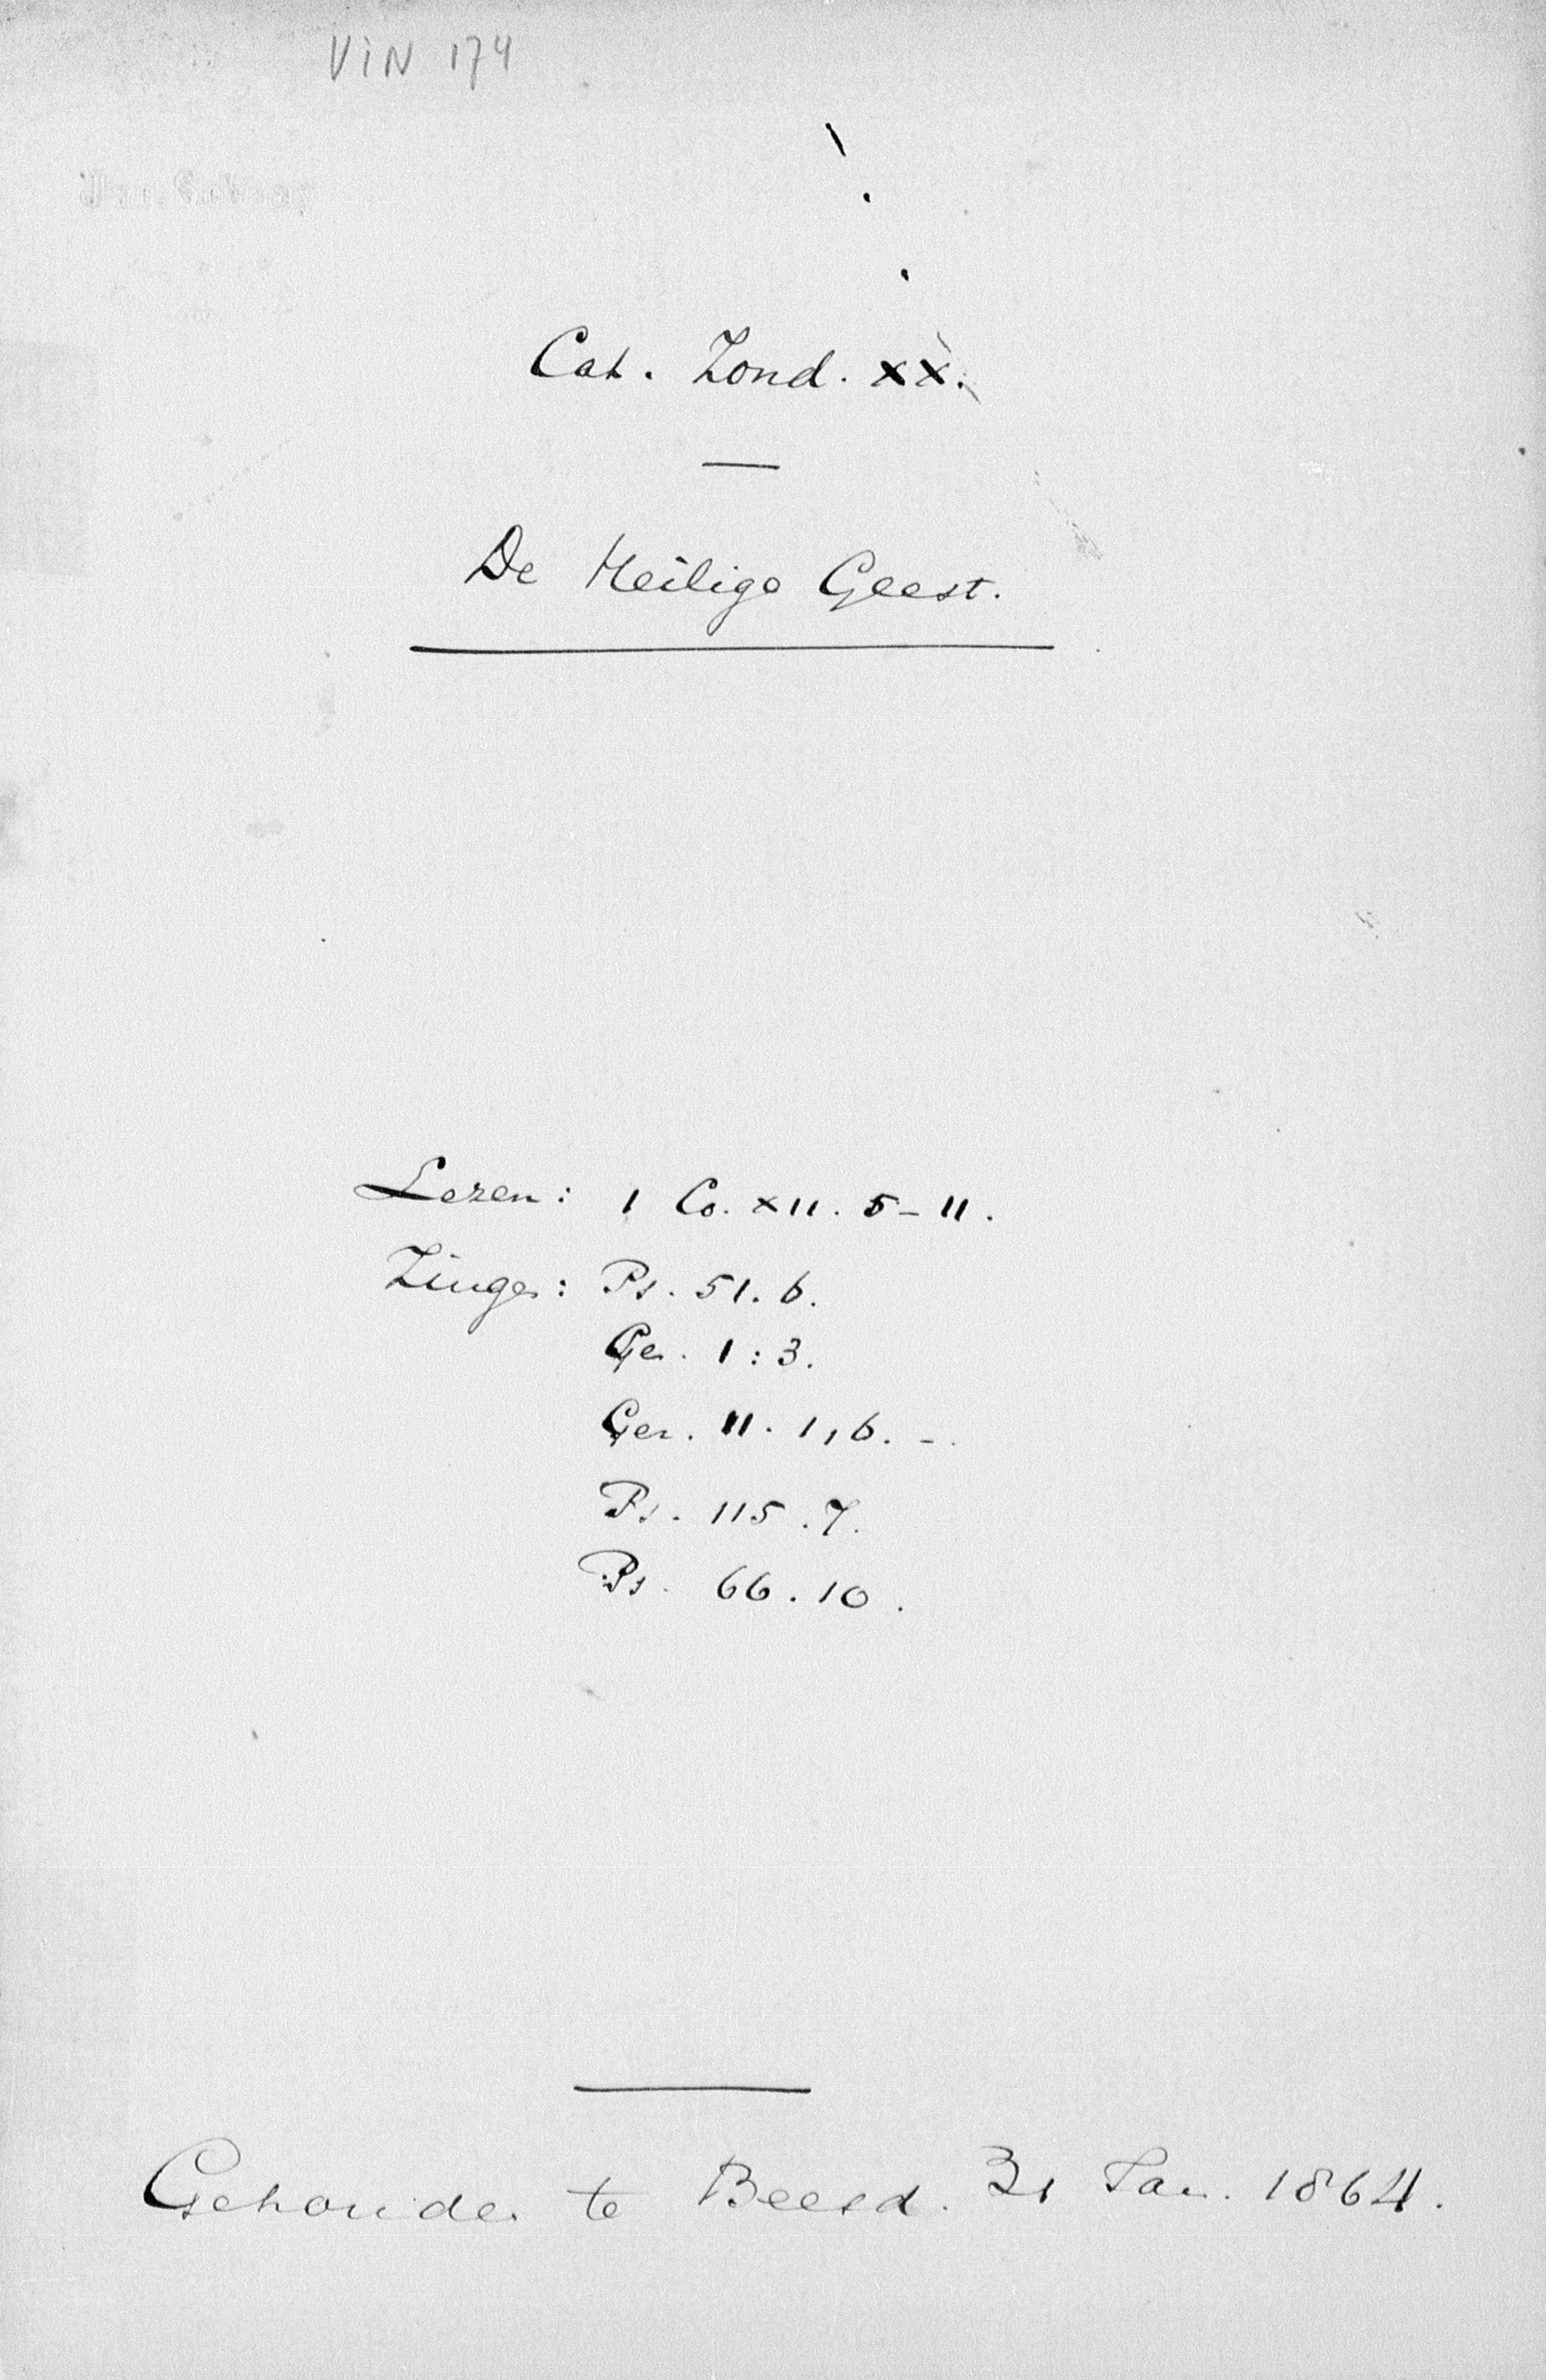 VIN 174
Cat. Zond. XX.
De Heilige Geest.
Lezen: 1 Co. XII. 5-11.
Zingen: Ps. 51. 6.
Gez. 1:3.
Gez. 11. 1, 6. -.
Ps. 115. 7.
Ps. 66. 10.
Gehouden te Beesd. 31 Jan. 1864.